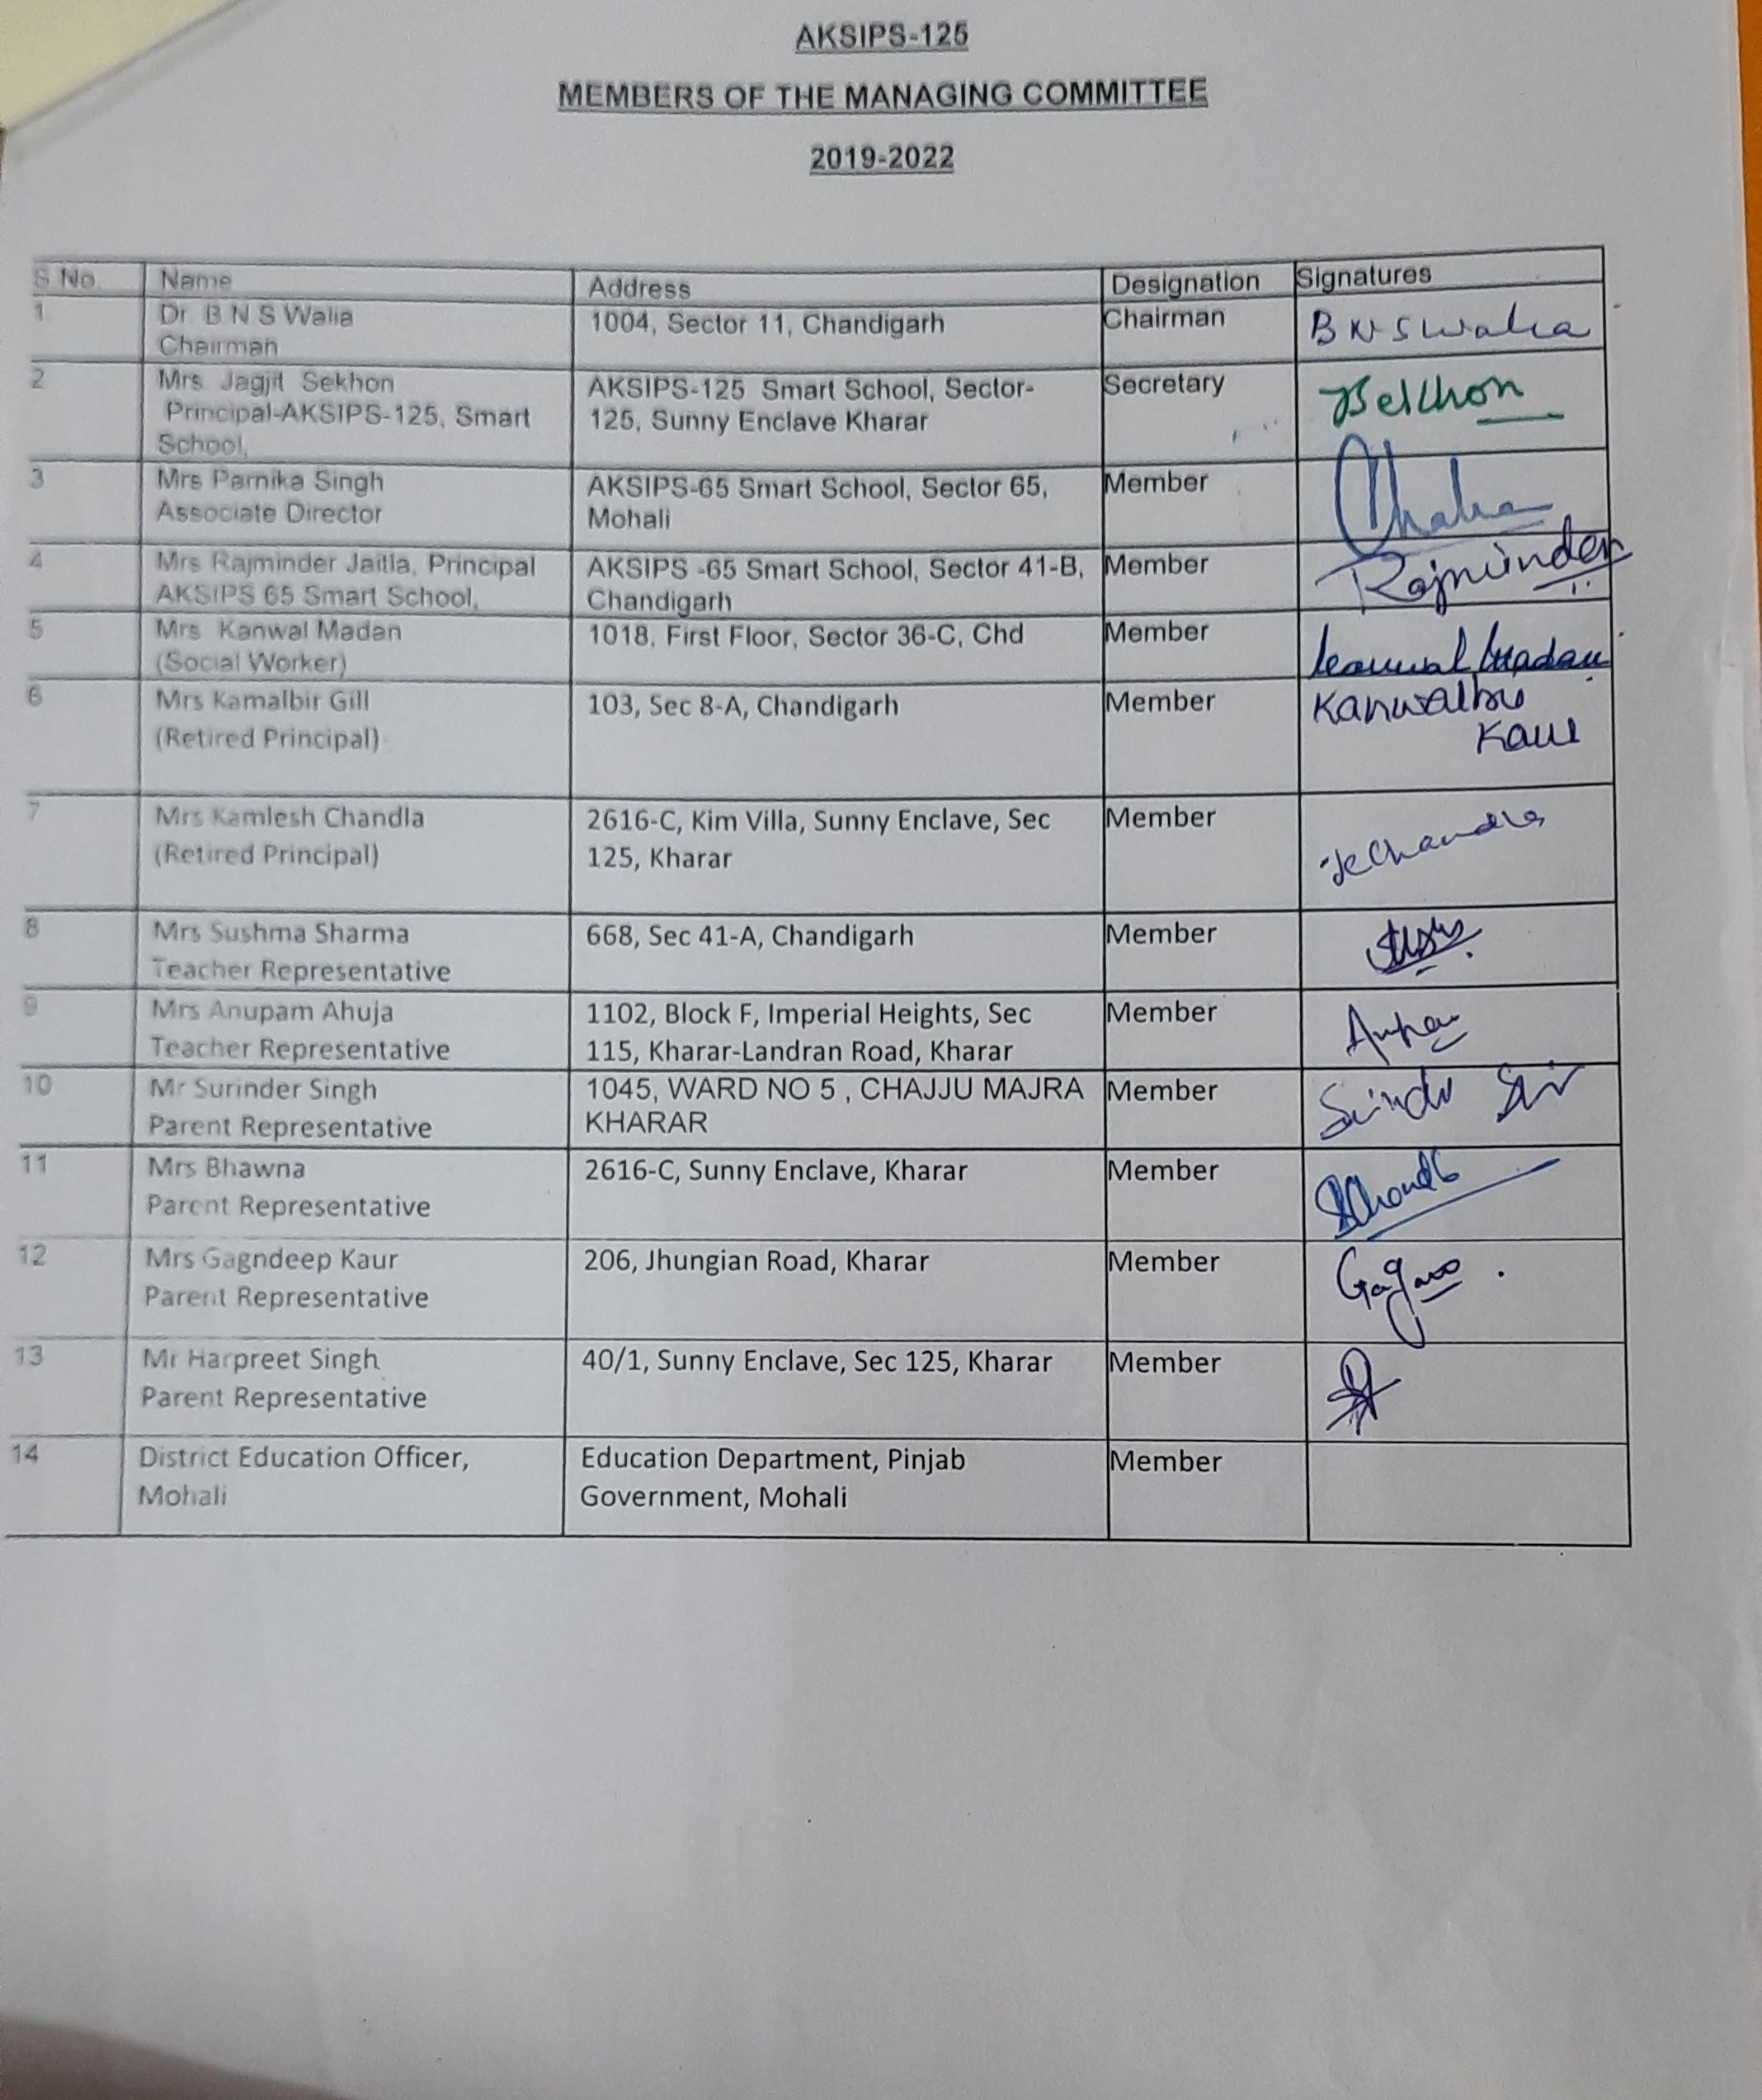 AKSIPS-125
MEMBERS OF THE MANAGING COMMITTEE
2019-2022
S No. Name Address Designation Signatures
1 Dr. B N S Walia 1004, Sector 11, Chandigarh Chairman B N S Walia
Chairman
2 Mrs Jagjit Sekhon AKSIPS-125 Smart School, Sector- Secretary JSekhon
Principal-AKSIPS-125, Smart 125, Sunny Enclave Kharar
School,
3 Mrs Parnika Singh AKSIPS-65 Smart School, Sector 65, Member
Associate Director Mohali
4 Mrs Rajminder Jaitla, Principal AKSIPS -65 Smart School, Sector 41-B, Member Rajminder
AKSIPS 65 Smart School, Chandigarh
5 Mrs Kanwal Madan 1018, First Floor, Sector 36-C, Chd Member Kanwal Madan
(Social Worker)
6 Mrs Kamalbir Gill 103, Sec 8-A, Chandigarh Member Kanwalbir
(Retired Principal) Kaur
7 Mrs Kamlesh Chandla 2616-C, Kim Villa, Sunny Enclave, Sec Member KChandla
(Retired Principal) 125, Kharar
8 Mrs Sushma Sharma 668, Sec 41-A, Chandigarh Member
Teacher Representative
9 Mrs Anupam Ahuja 1102, Block F, Imperial Heights, Sec Member
Teacher Representative 115, Kharar-Landran Road, Kharar
10 Mr Surinder Singh 1045, WARD NO 5 , CHAJJU MAJRA Member
Parent Representative KHARAR
11 Mrs Bhawna 2616-C, Sunny Enclave, Kharar Member
Parent Representative
12 Mrs Gagndeep Kaur 206, Jhungian Road, Kharar Member
Parent Representative
13 Mr Harpreet Singh 40/1, Sunny Enclave, Sec 125, Kharar Member
Parent Representative
14 District Education Officer, Education Department, Pinjab Member
Mohali Government, Mohali